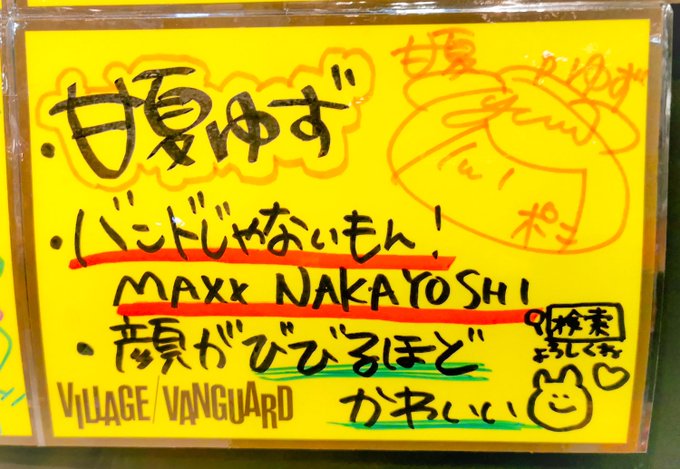 ・甘夏ゆず
甘夏 ゆず
ポミ
・バンドじゃないもん!
MAXX NAKAYOSHI
検索
よろしくね
・顔がびびるほど
かわいい
VILLAGE/VANGUARD